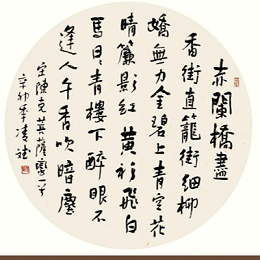 赤闌橋盡
香街直籠街細柳
嬌無力金碧上青空花
晴簾影紅黃衫飛白
馬日日青樓下醉眼不
逢人午香吹暗塵
宋陳克菩薩蠻一首
辛卯年凌